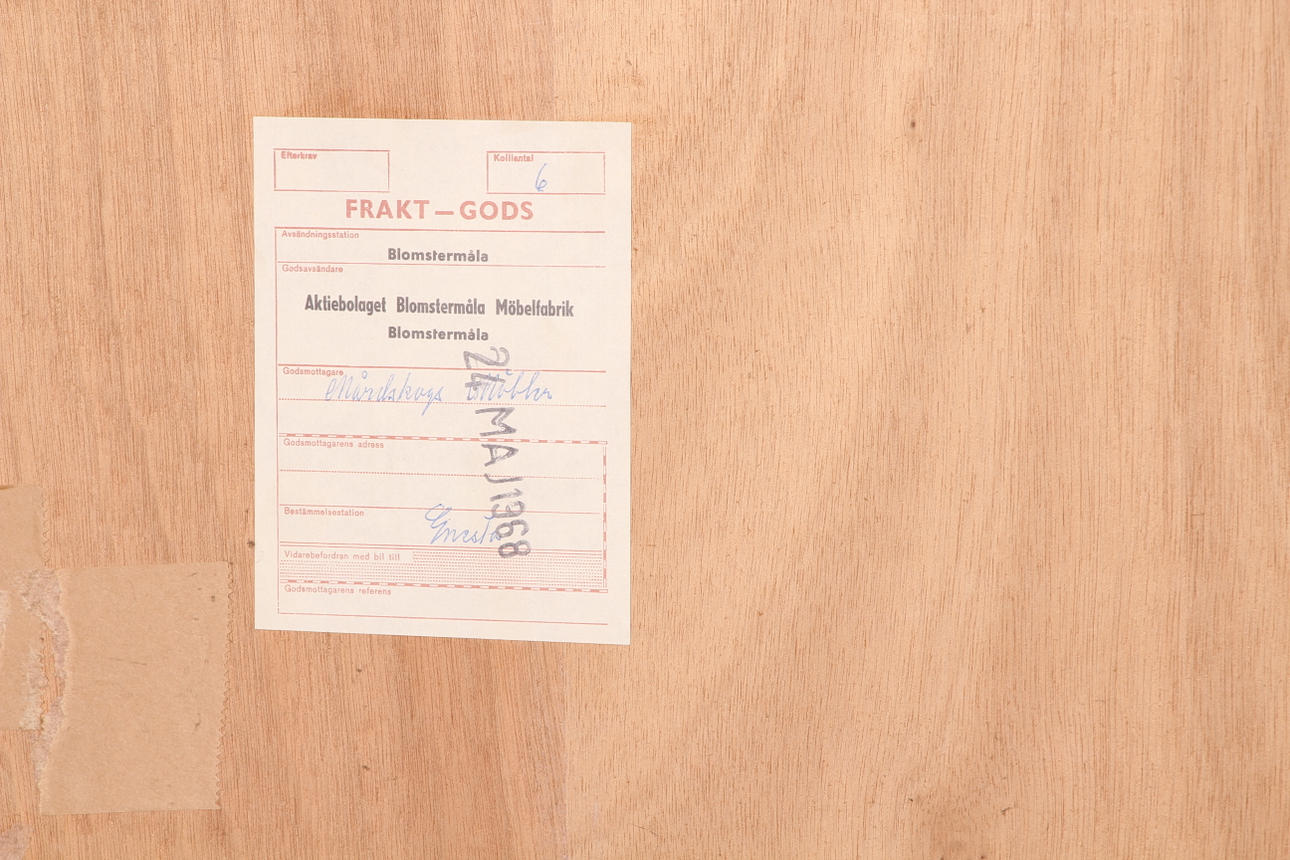 Efterkrav
Kolliantal
6
FRAKT — GODS
Avsändningsstation
Blomstermåla
Godsavsändare
Aktiebolaget Blomstermåla Möbelfabrik
Blomstermåla
Godsmottagare
Möbler
24 MAJ 1968
Godsmottagarens adress
Bestämmelsestation
Gnesta
Vidarebefordran med bil till
Godsmottagarens referens